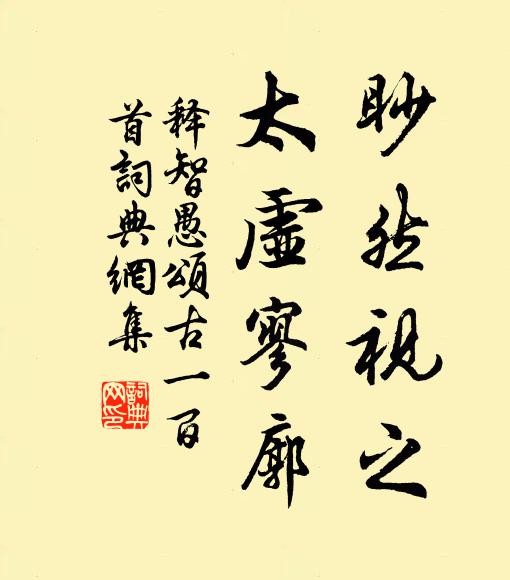 眇然視之
太虛寥廓
释智愚頌古一百
首詞典網集
詞典
网印